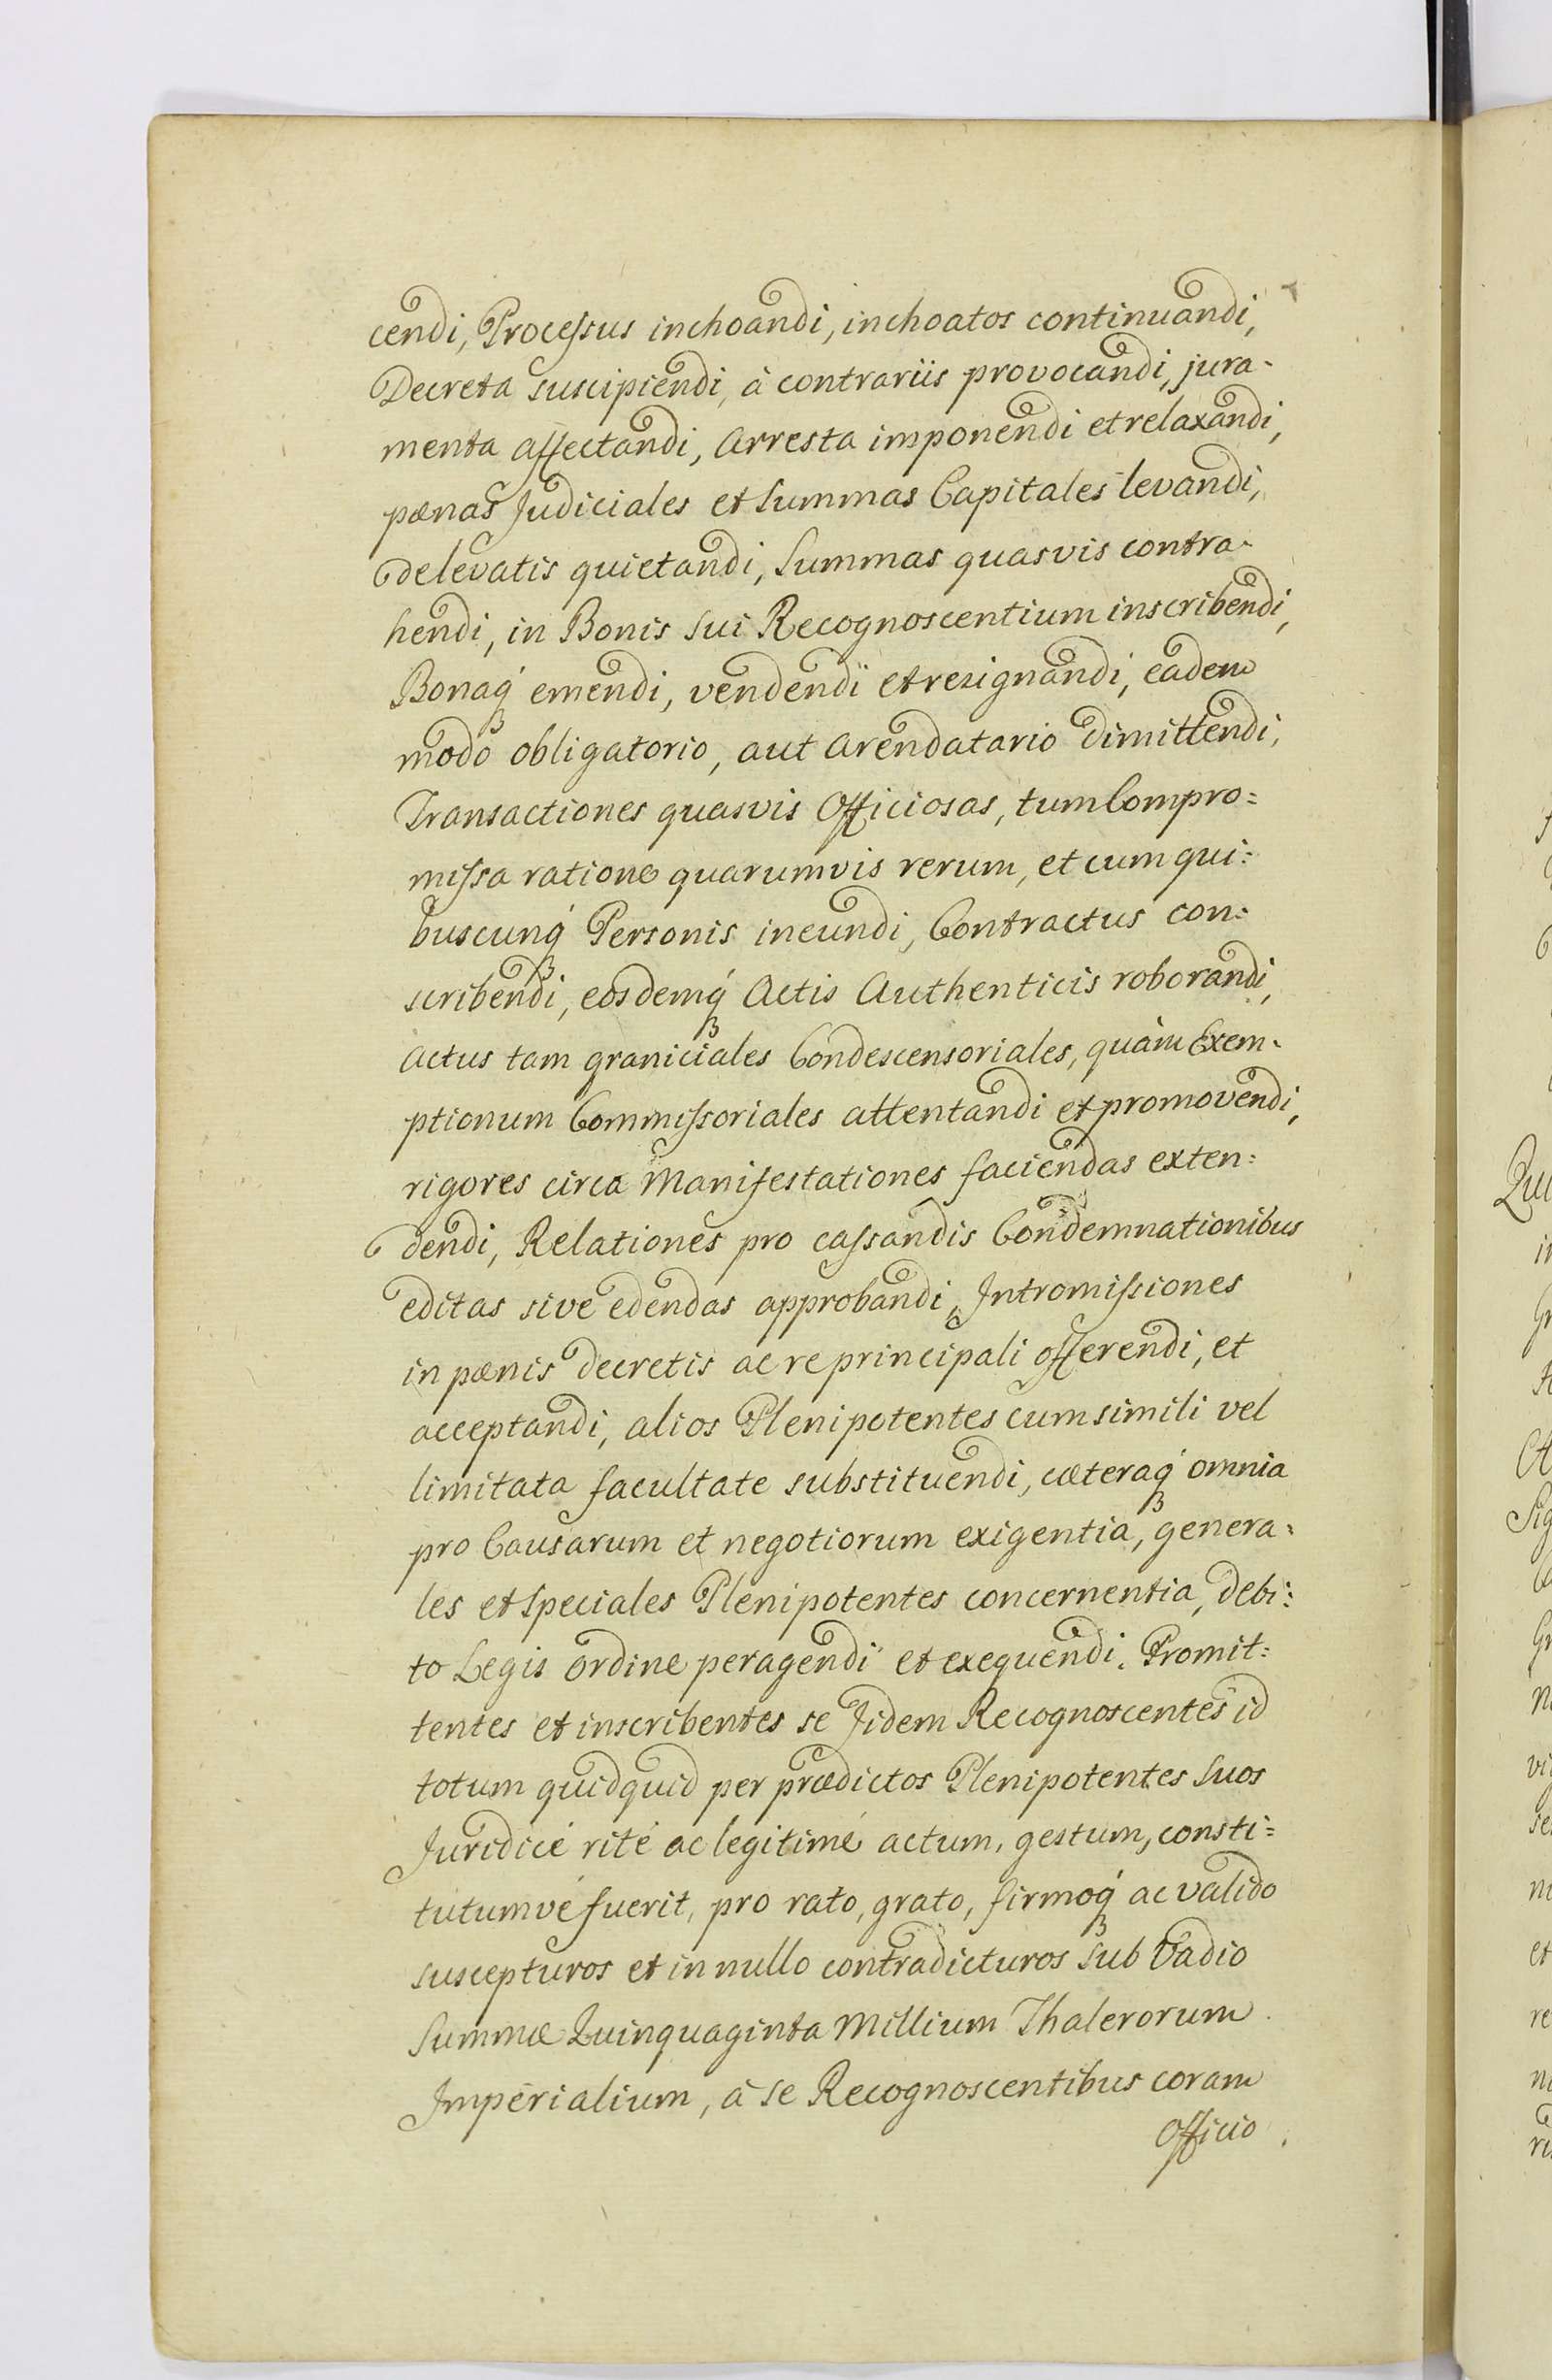 cendi, Processus inchoandi, inchoatos continuandi,
Decreta suscipiendi, à contrariis provocandi, jura-
menta affectandi, Arresta imponendi et relaxandi,
pœnas Judiciales et Summas Capitales levandi,
de levatis quietandi, Summas quasvis contra-
hendi, in Bonis sui Recognoscentium inscribendi,
Bonaq́ꝫ emendi, vendendi et resignandi, eadem
modo obligatorio, aut arendatario dimittendi,
Transactiones quasvis Officiosas, tum Compro=
missa ratione quarumvis rerum, et cum qui=
buscunq́ꝫ Personis ineundi, Contractus con=
scribendi, eosdemq́ꝫ Actis Authenticis roborandi,
Actus tam graniciales Condescensoriales, quàm Exem-
ptionum Commissoriales attentandi et promovendi,
rigores circa Manifestationes faciendas exten=
dendi, Relationes pro cassandis Condemnationibus
editas sive edendas approbandi, Intromissiones
in pœnis decretis ac re principali offerendi, et
acceptandi, alios Plenipotentes cum simili vel
limitata facultate substituendi, cæteraq́ꝫ omnia
pro Causarum et negotiorum exigentia, genera=
les et speciales Plenipotentes concernentia, debi=
to Legis ordine peragendi et exequendi. Promit=
tentes et inscribentes se Jidem Recognoscentes id
totum quidquid per prædictos Plenipotentes Suos
Juridicé rité ac legitimé actum, gestum, consti=
tutumvé fuerit, pro rato, grato, firmoq́ꝫ ac valido
suscepturos et in nullo contradicturos sub Vadio
Summæ Quinquaginta Millium Thalerorum
Imperialium, à se Recognoscentibus coram
Officio